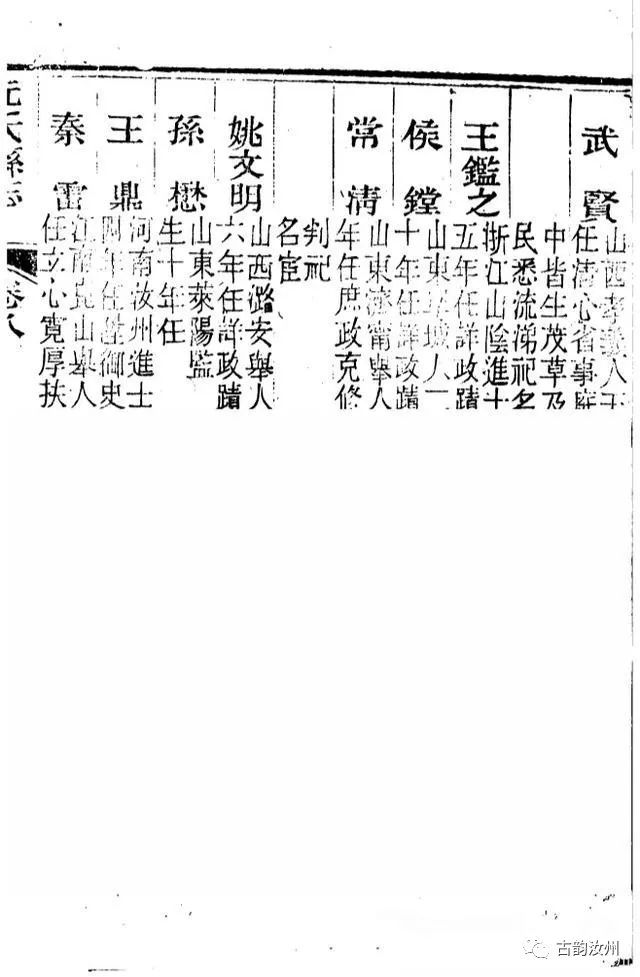 武賢
山西孝義人
任清心省事庭
中皆生茂草乃
民悉流涕祀名
王鑑之
浙江山陰進士
五年任詳政蹟
侯鏜
山東城人二
十年任詳政蹟
常清
山東濟甯舉人
年任庶政克修
判祀
名宦
姚文明
山西潞安舉人
六年任詳政蹟
孫懋
山東萊陽監
生十年任
王鼎
河南汝州進士
年任御史
秦雷
江南崑山舉人
任立心寬厚扶
元氏縣志 卷八
古韵汝州